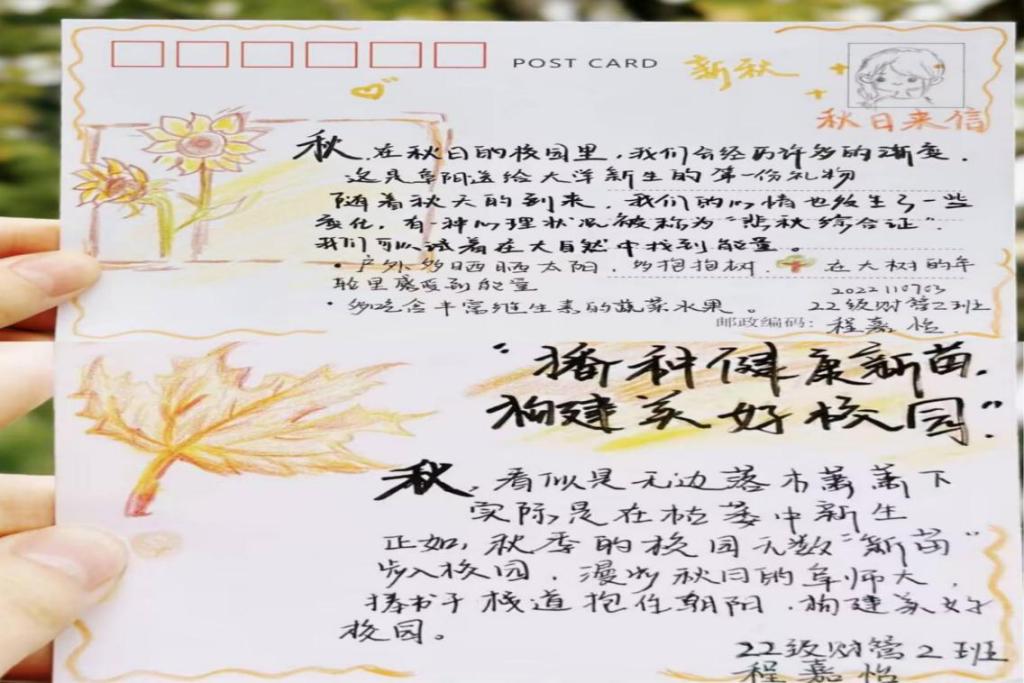 POST CARD
新秋
秋日来信
秋,在秋日的校园里,我们会经历许多的渐变.
这是阜阳送给大洋新生的第一份礼物
随着秋天的到来,我们的心情也发生了一些
变化,有一种心理状况被称为“悲秋综合证”.
我们可以试着在大自然中找到能量。
·户外多晒晒太阳,多抱抱树. 在大树的年
轮里感受到能量
·多吃含丰富维生素的蔬菜水果。
2022110703
22级财管2班
邮政编码:
程嘉怡.
“播种健康新苗.
构建美好校园.”
秋,看似是无边落木萧萧下
实际是在枯萎中新生
正如,秋季的校园无数“新苗”
步入校园,漫步秋日的阜师大,
捧书于栈道抱住朝阳.构建美好
校园。
22级财管2班
程嘉怡